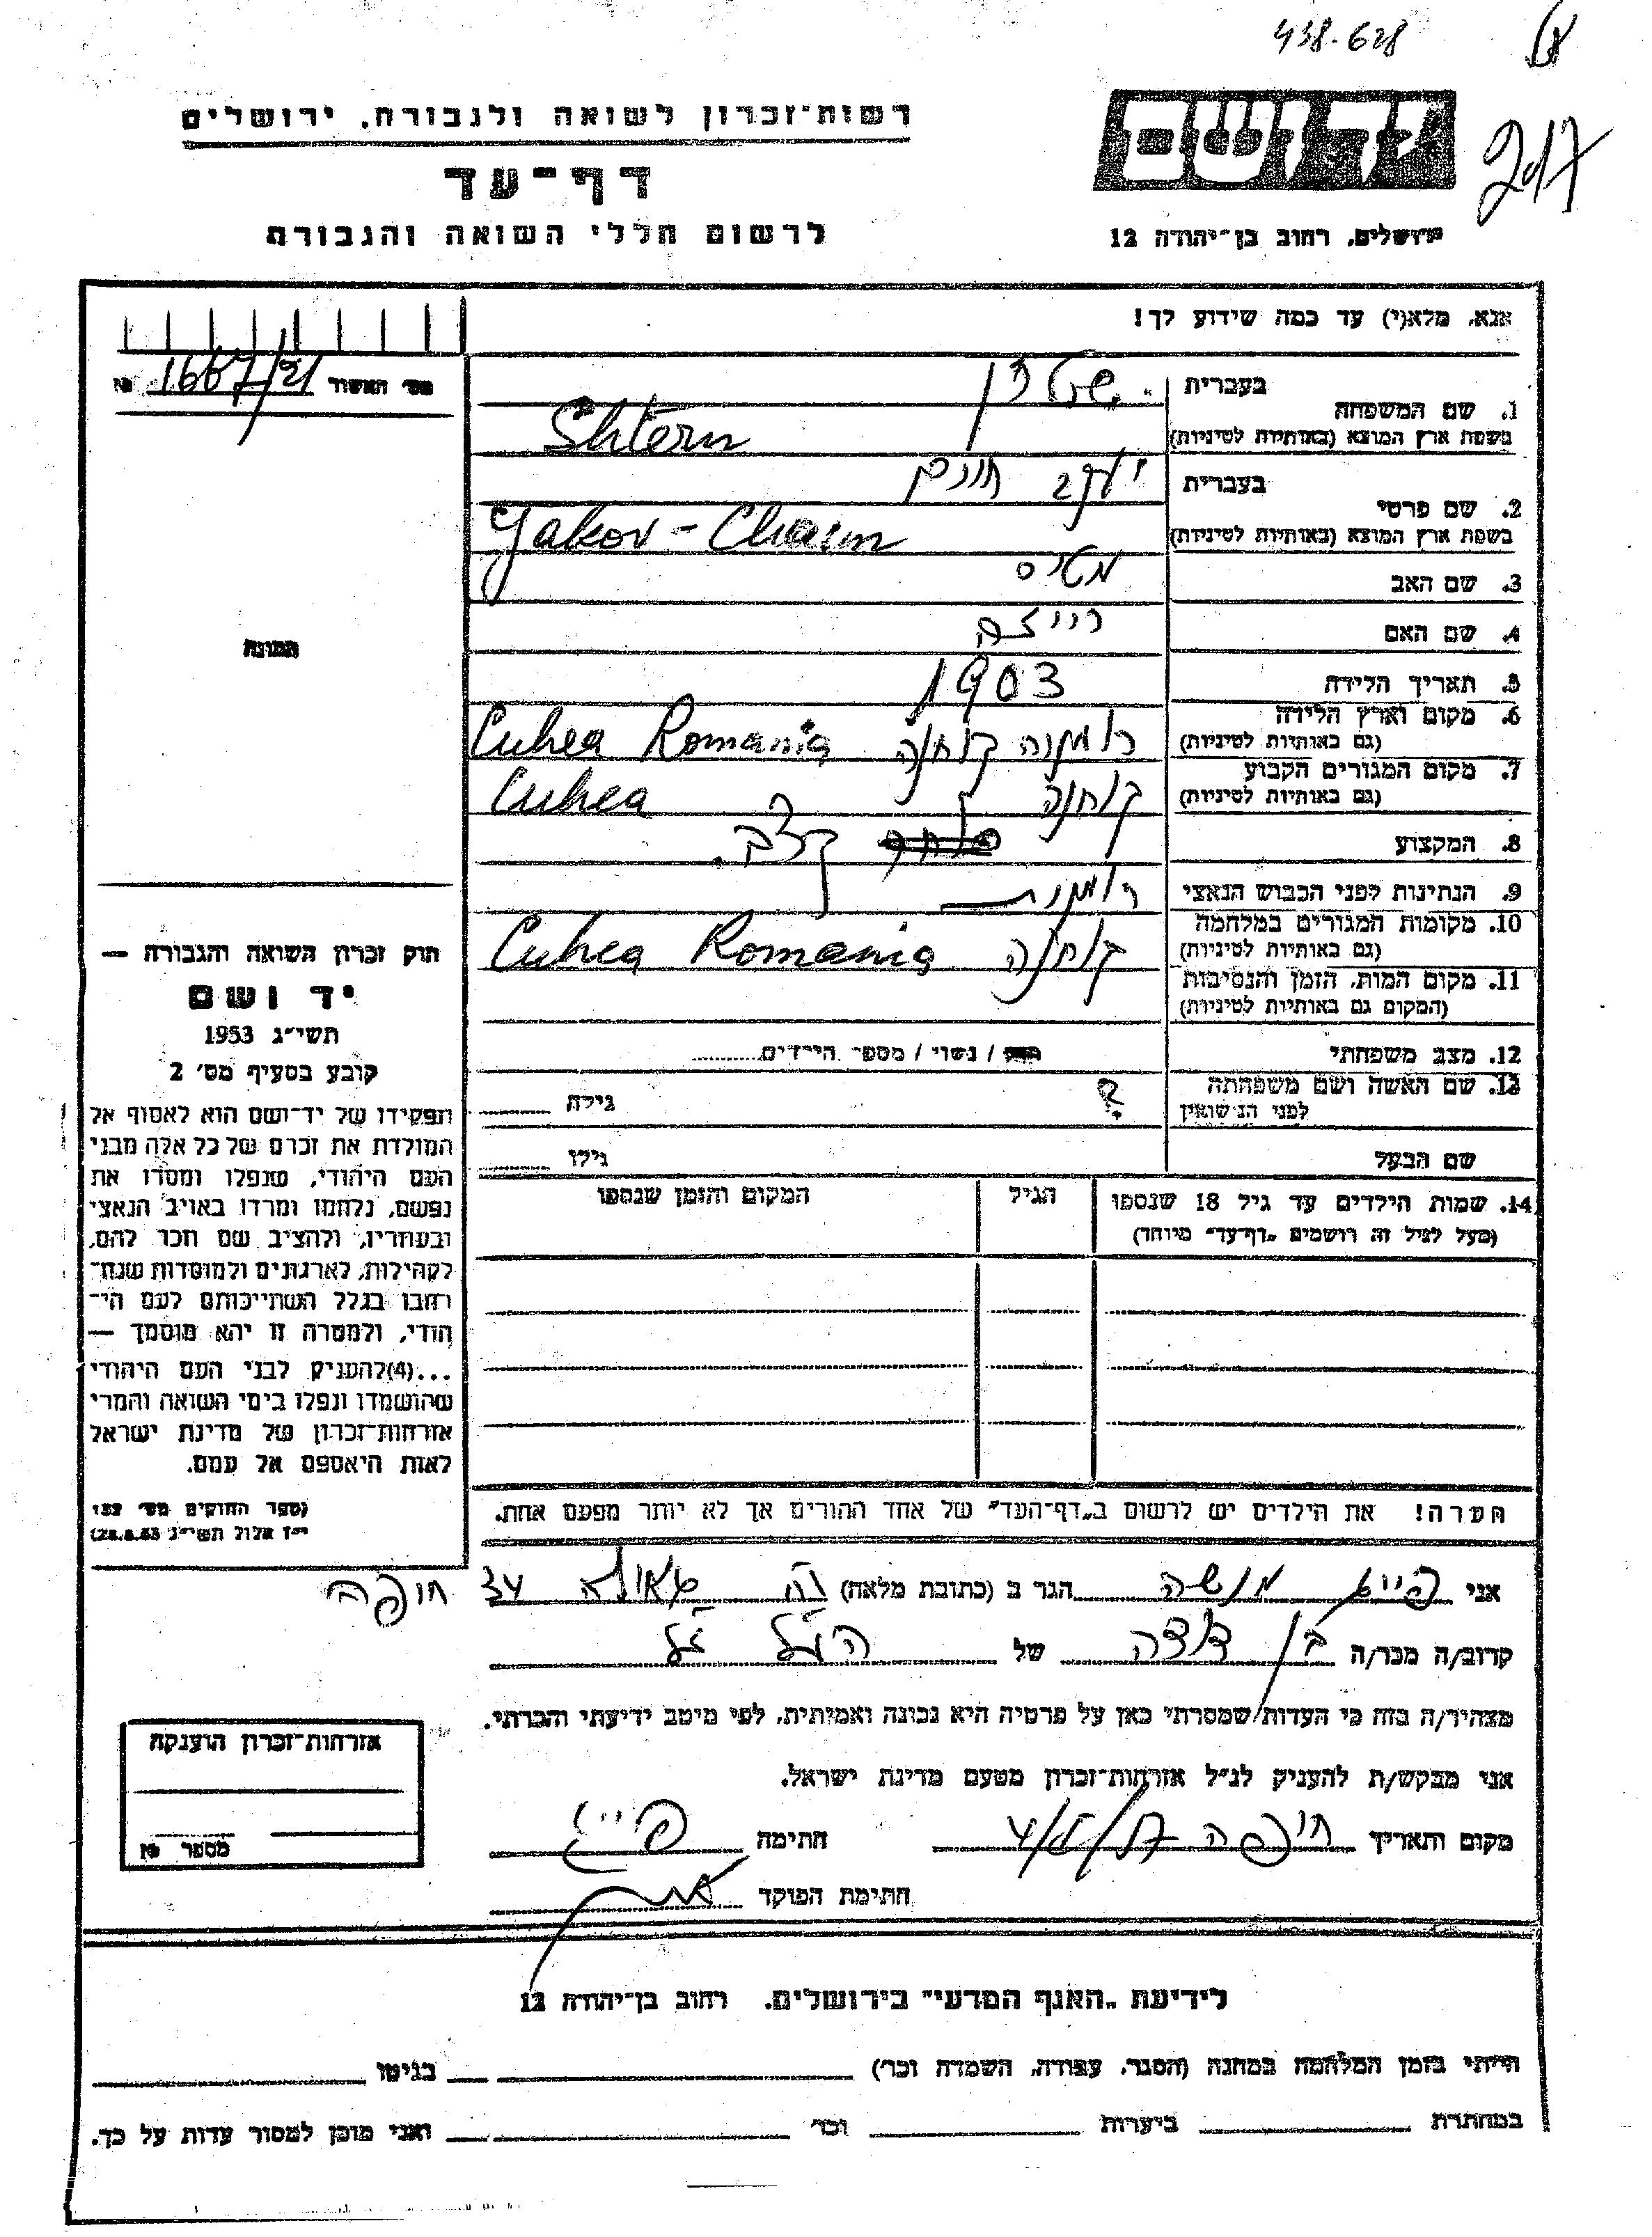 438-628
217
רשות־זכרון לשואה ולגבורה, ירושלים
דף־עד
לרשום חללי השואה והגבורה
ירושלים, רחוב בן־יהודה 12
אנא, מלא(י) עד כמה שידוע לך!
מס׳ האשור
1. שם המשפחה
בעברית שטרן
בשפת ארץ המוצא (באותיות לטיניות) Shtern
2. שם פרטי
בעברית יעקב חיים
בשפת ארץ המוצא (באותיות לטיניות) Yakov - Chaim
3. שם האב מטיס
4. שם האם רייזה
5. תאריך הלידה 1903
6. מקום וארץ הלידה (גם באותיות לטיניות) רומניה קוחנה Cuhea Romania
7. מקום המגורים הקבוע (גם באותיות לטיניות) קוחנה Cuhea
8. המקצוע קצב.
9. הנתינות לפני הכבוש הנאצי רומנית
10. מקומות המגורים במלחמה (גם באותיות לטיניות) קוחנה Cuhea Romania
11. מקום המות, הזמן והנסיבות
(המקום גם באותיות לטיניות)
12. מצב משפחתי / נשוי / מספר הילדים
13. שם האשה ושם משפחתה לפני הנישואין ? גילה
שם הבעל גילו
14. שמות הילדים עד גיל 18 שנספו
(מעל לגיל זה רושמים "דף־עד" מיוחד)
הגיל
המקום והזמן שנספו
הערה! את הילדים יש לרשום ב"דף־העד" של אחד ההורים אך לא יותר מפעם אחת.
תמונה
חוק זכרון השואה והגבורה —
יד ושם
תשי״ג 1953
קובע בסעיף מס׳ 2
תפקידו של יד־ושם הוא לאסוף אל
המולדת את זכרם של כל אלה מבני
העם היהודי, שנפלו ומסרו את
נפשם, נלחמו ומרדו באויב הנאצי
ובעוזריו, ולהציב שם וזכר להם,
לקהילות, לארגונים ולמוסדות שנח־
רבו בגלל השתייכותם לעם הי־
הודי, ולמטרה זו יהא מוסמך —
...(4) להעניק לבני העם היהודי
שהושמדו ונפלו בימי השואה והמרי
אזרחות־זכרון של מדינת ישראל
לאות היאספם אל עמם.
(ספר החוקים מס׳ 132
י״ז אלול תשי״ג 28.8.53)
אני מנשה הגר ב (כתובת מלאה) 34 חיפה
קרוב/ה מכר/ה בן דודה של הנ״ל
מצהיר/ה בזה כי העדות שמסרתי כאן על פרטיה היא נכונה ואמיתית, לפי מיטב ידיעתי והכרתי.
אני מבקש/ת להעניק לנ״ל אזרחות־זכרון מטעם מדינת ישראל.
מקום ותאריך חיפה חתימה
חתימת הפוקד
אזרחות־זכרון הוענקה
מספר
לידיעת "האגף המדעי" בירושלים. רחוב בן־יהודה 12
הייתי בזמן המלחמה במחנה (הסגר, עבודה, השמדה וכו׳) בגיטו
במחתרת ביערות וכו׳ ואני מוכן למסור עדות על כך.